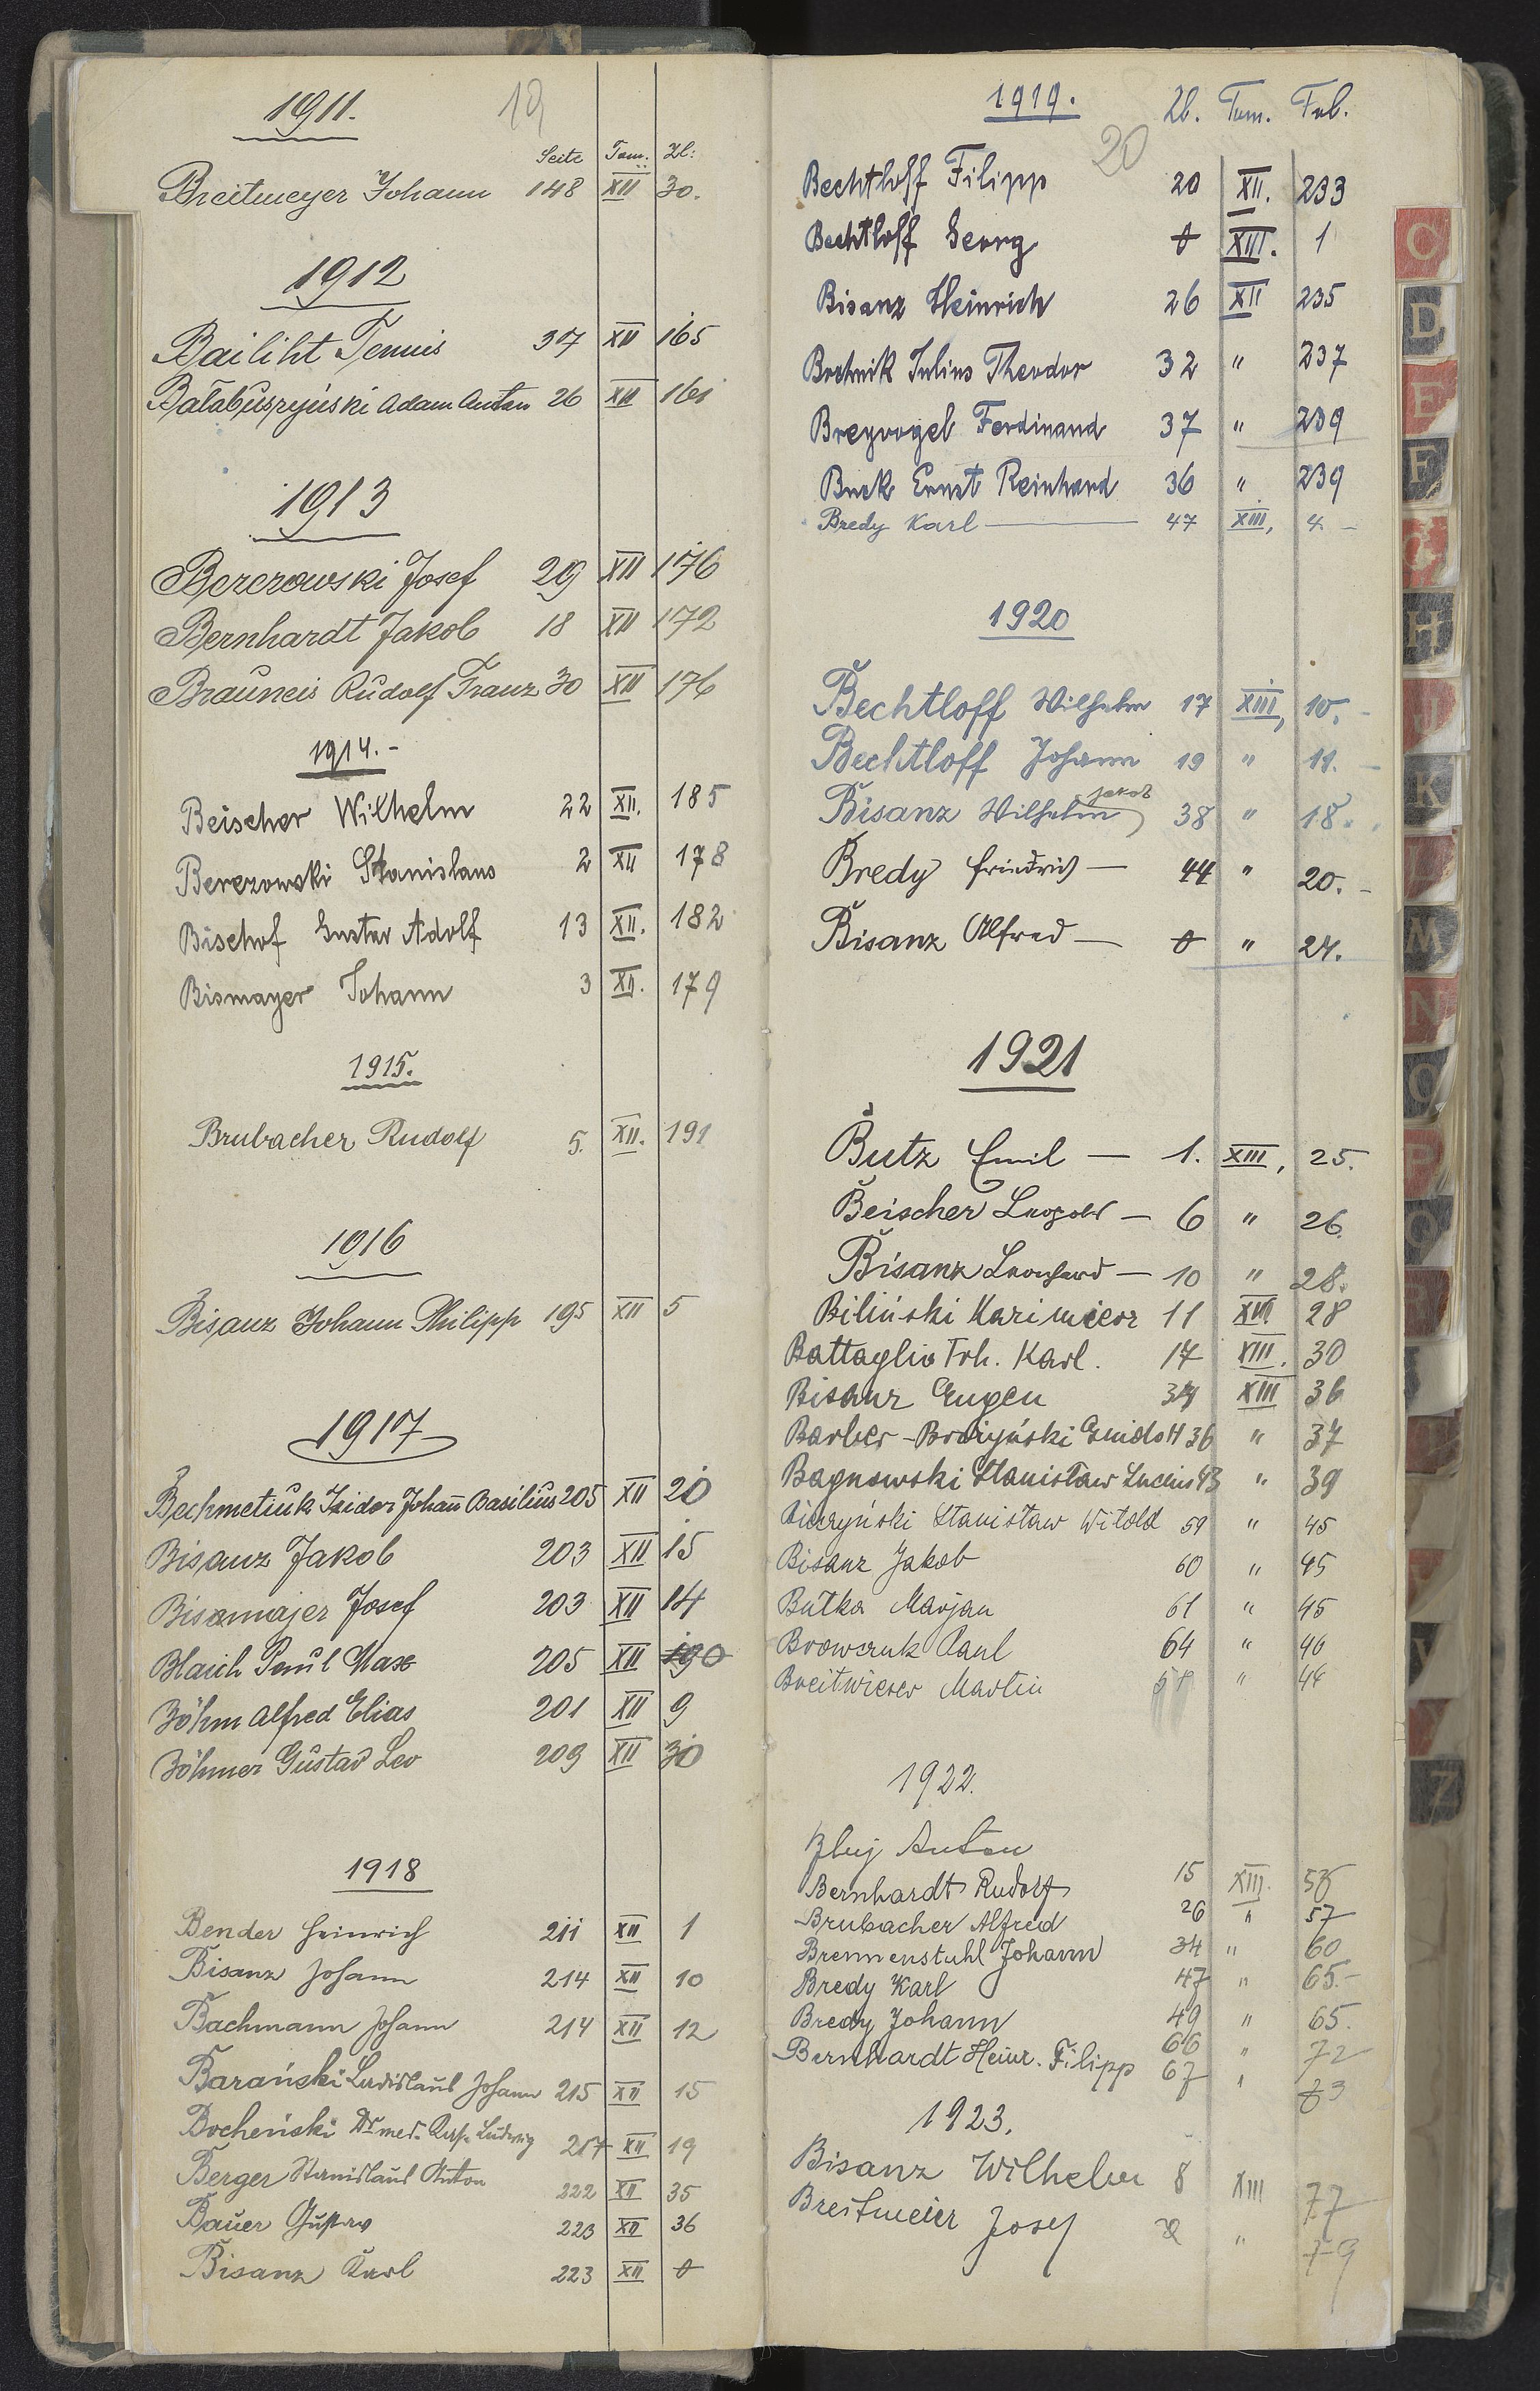 1911.
19
Seite Tom. Zl:
Breitmeyer Johann 148 XII 30.
1912
Bailiht Tennis 37 XII 165
Bałabuszyński Adam Anton 26 XII 161
1913
Berezowski Josef 29 XII 176
Bernhardt Jakob 18 XII 172
Brauneis Rudolf Franz 30 XII 176
1914.-
Beischer Wilhelm 22 XII. 185
Berezowski Stanislaus 2 XII 178
Bischof Gustav Adolf 13 XII. 182
Bismayer Johann 3 XII. 179
1915.
Brubacher Rudolf 5. XII. 191
1916
Bisanz Johann Philipp 195 XII 5
1917
Bechmetiuk Isidor Johann Basilius 205 XII 20
Bisanz Jakob 203 XII 15
Bisamajer Josef 203 XII 14
Blaich Paul Max 205 XII
Böhm Alfred Elias 201 XII 9
Böhmer Gustav Leo 209 XII 30
1918
Bender Heinrich 211 XII 1
Bisanz Johann 214 XII 10
Bachmann Johann 214 XII 12
Barański Ladislaus Johann 215 XII 15
Bocheński Dr med. Ludwig 217 XII 19
Berger Stanislaus Anton 222 XII 35
Bauer Gustav 223 XII 36
Bisanz Karl 223 XII 0
1919.
20
Zl. Tom. Fol.
Bechtloff Filipp 20 XII. 233
Bechtloff Georg 0 XIII. 1
Bisanz Heinrich 26 XII 235
Bochnik Julius Theodor 32 " 237
Breyvogel Ferdinand 37 " 239
Buck Ernst Reinhard 36 " 239
Bredy Karl — 47 XIII, 4 -
1920
Bechtloff Wilhelm 17 XIII, 10. -
Bechtloff Johann 19 " 11. -
Bisanz Wilhelm Jakob 38 " 18.
Bredy Friedrich — 44 " 20. -
Bisanz Alfred — 0 " 24.
1921
Butz Emil — 1. XIII, 25.
Beischer Leopold — 6 " 26.
Bisanz Leonhard — 10 " 28.
Biliński Kazimierz 11 XIII 28
Battaglia Frh. Karl. 17 XIII. 30
Bisanz Eugen 34 XIII 36
Barber-Brożyński Guido H 36 " 37
Bagnowski Stanisław Lucius 43 " 39
Stanisław Witold 59 " 45
Bisanz Jakob 60 " 45
Butka Marjan 61 " 45
Browczuk Paul 64 " 46
Breitwieser Martin " 44
1922.
Anton
15 XIII.
Bernhardt Rudolf
26 " 57
Brubacher Alfred
34 " 60
Brennenstuhl Johann
47 " 65.-
Bredy Karl
49 " 65.
Bredy Johann
66 " 72
Bernhardt Heinr. Filipp 67 " 73
1923.
Bisanz Wilhelm 8 XIII 77
Breitmeier Josef " 79
C
D
E
F
H
J
K
L
M
N
O
P
Q
R
V
Z